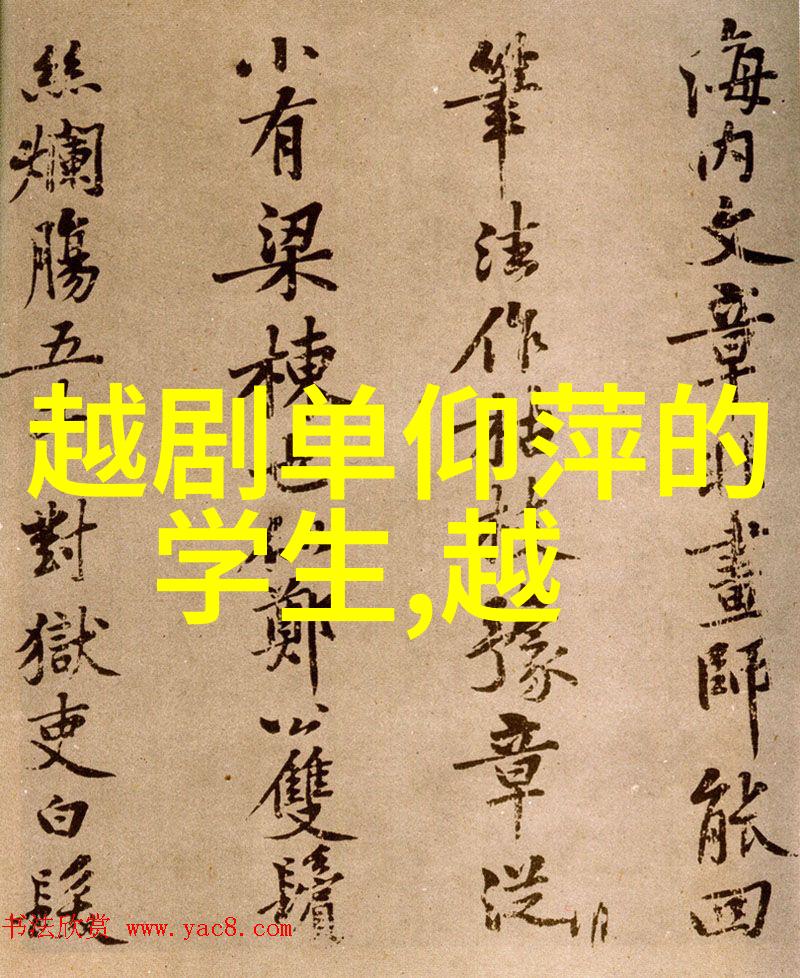 海内文章畫師能回
筆法作枯枝豫章從
小有梁棟鄭公雙鬢
絲爛腸五十對獄吏白髮
越剧单仰萍的
学生,越
书法欣赏 www.yac8.com